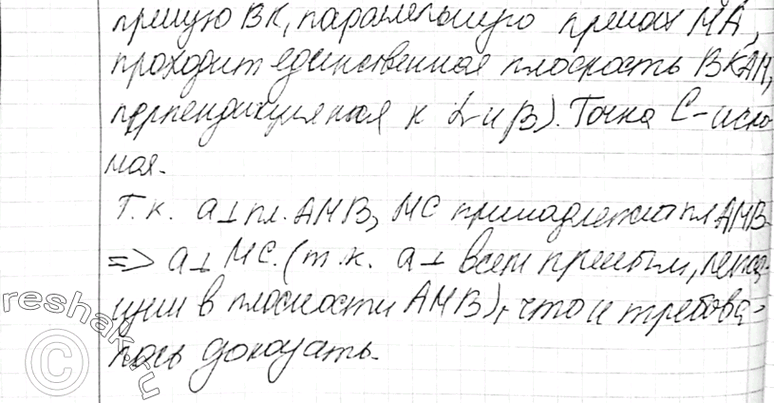 прямую ВК, параллельную прямой МА,
проходит единственная плоскость ВКАМ,
перпендикулярная к α и β). Точка С - иско
мая.
Т.к. a⊥пл. АМВ, МС принадлежит пл АМВ
=> a⊥ МС. (т.к. a⊥ всем прямым, лежа-
щим в плоскости АМВ), что и требова-
лось доказать.
reshak.ru
©